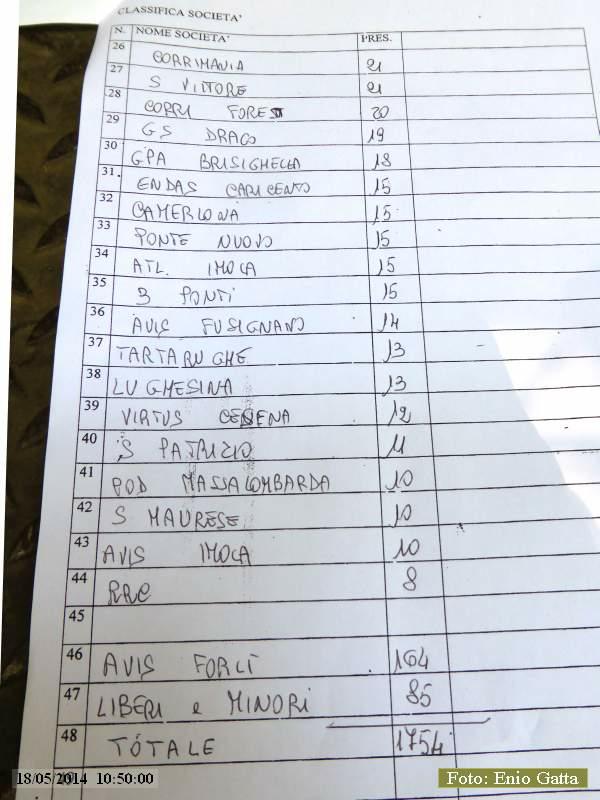 CLASSIFICA SOCIETA'
N. NOME SOCIETA' PRES.
26 CORRIMANIA 21
27 S VITTORE 21
28 CORRI FOREST 20
29 GS DRAGO 19
30 GPA BRISIGHELLA 18
31. ENDAS CARICENTO 15
32 CAMERLONA 15
33 PONTE NUOVO 15
34 ATL. IMOLA 15
35 3 PONTI 15
36 AVIS FUSIGNANO 14
37 TARTARUGHE 13
38 LUGHESINA 13
39 VIRTUS CESENA 12
40 S PATRIZIO 11
41 POD MASSALOMBARDA 10
42 S MAURESE 10
43 AVIS IMOLA 10
44 RRC 8
45
46 AVIS FORLÌ 164
47 LIBERI e MINORI 85
48 TOTALE 1754
18/05/2014 10:50:00
Foto: Enio Gatta